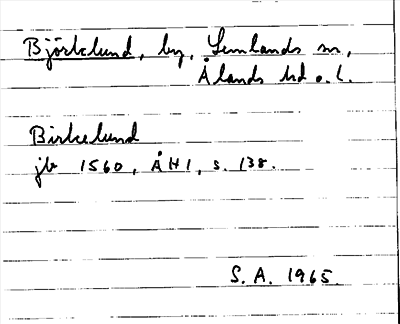 Björklund, by, Lemlands sn,
Ålands hd o. l.
Birkelund
jb 1560, ÅH1, s. 138.
S. A. 1965.